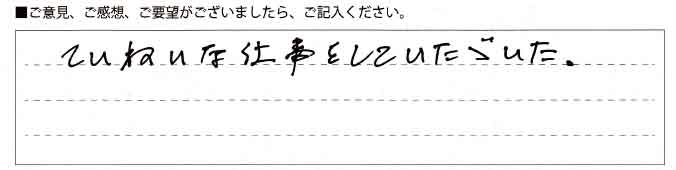 ■ご意見、ご感想、ご要望がございましたら、ご記入ください。
ていねいな仕事をしていただいた。